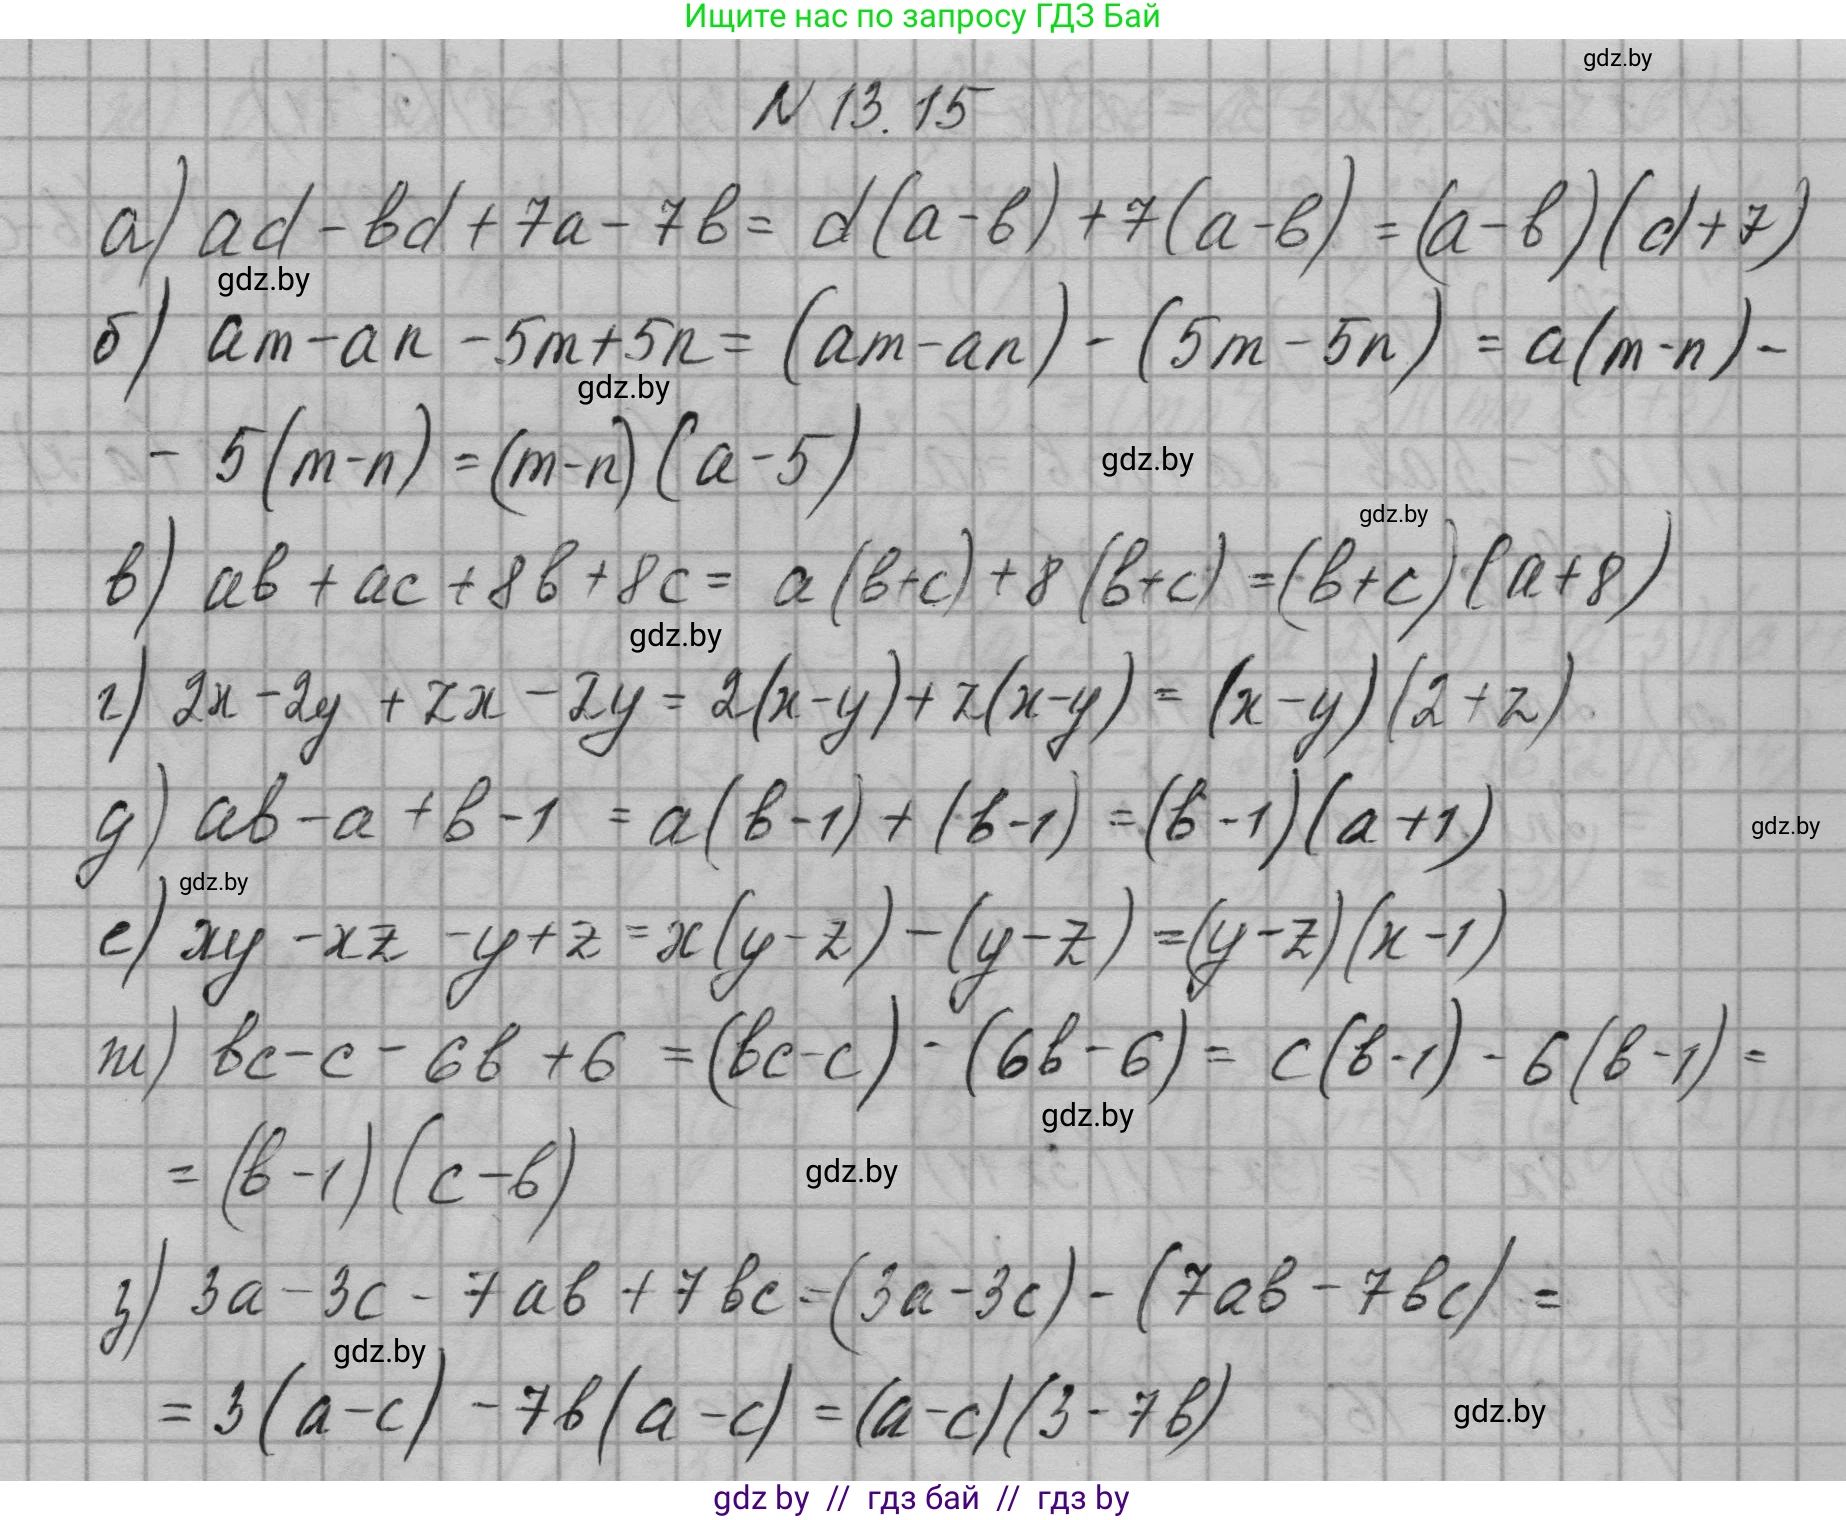 Ищите нас по запросу ГДЗ Бай
gdz.by
N 13.15
а) ad - bd + 7a - 7b = d(a-b) + 7(a-b) = (a-b)(d+7)
gdz.by
б) am - an - 5m + 5n = (am - an) - (5m - 5n) = a(m-n) -
gdz.by
- 5(m-n) = (m-n)(a-5)
gdz.by
gdz.by
в) ab + ac + 8b + 8c = a(b+c) + 8(b+c) = (b+c)(a+8)
gdz.by
г) 2x - 2y + zx - zy = 2(x-y) + z(x-y) = (x-y)(2+z)
д) ab - a + b - 1 = a(b-1) + (b-1) = (b-1)(a+1)
gdz.by
gdz.by
е) xy - xz - y + z = x(y-z) - (y-z) = (y-z)(x-1)
ж) bc - c - 6b + 6 = (bc-c) - (6b-6) = c(b-1) - 6(b-1) =
gdz.by
= (b-1)(c-b)
gdz.by
з) 3a - 3c - 7ab + 7bc = (3a-3c) - (7ab - 7bc) =
gdz.by
= 3(a-c) - 7b(a-c) = (a-c)(3-7b)
gdz.by
gdz by // гдз бай // гдз by